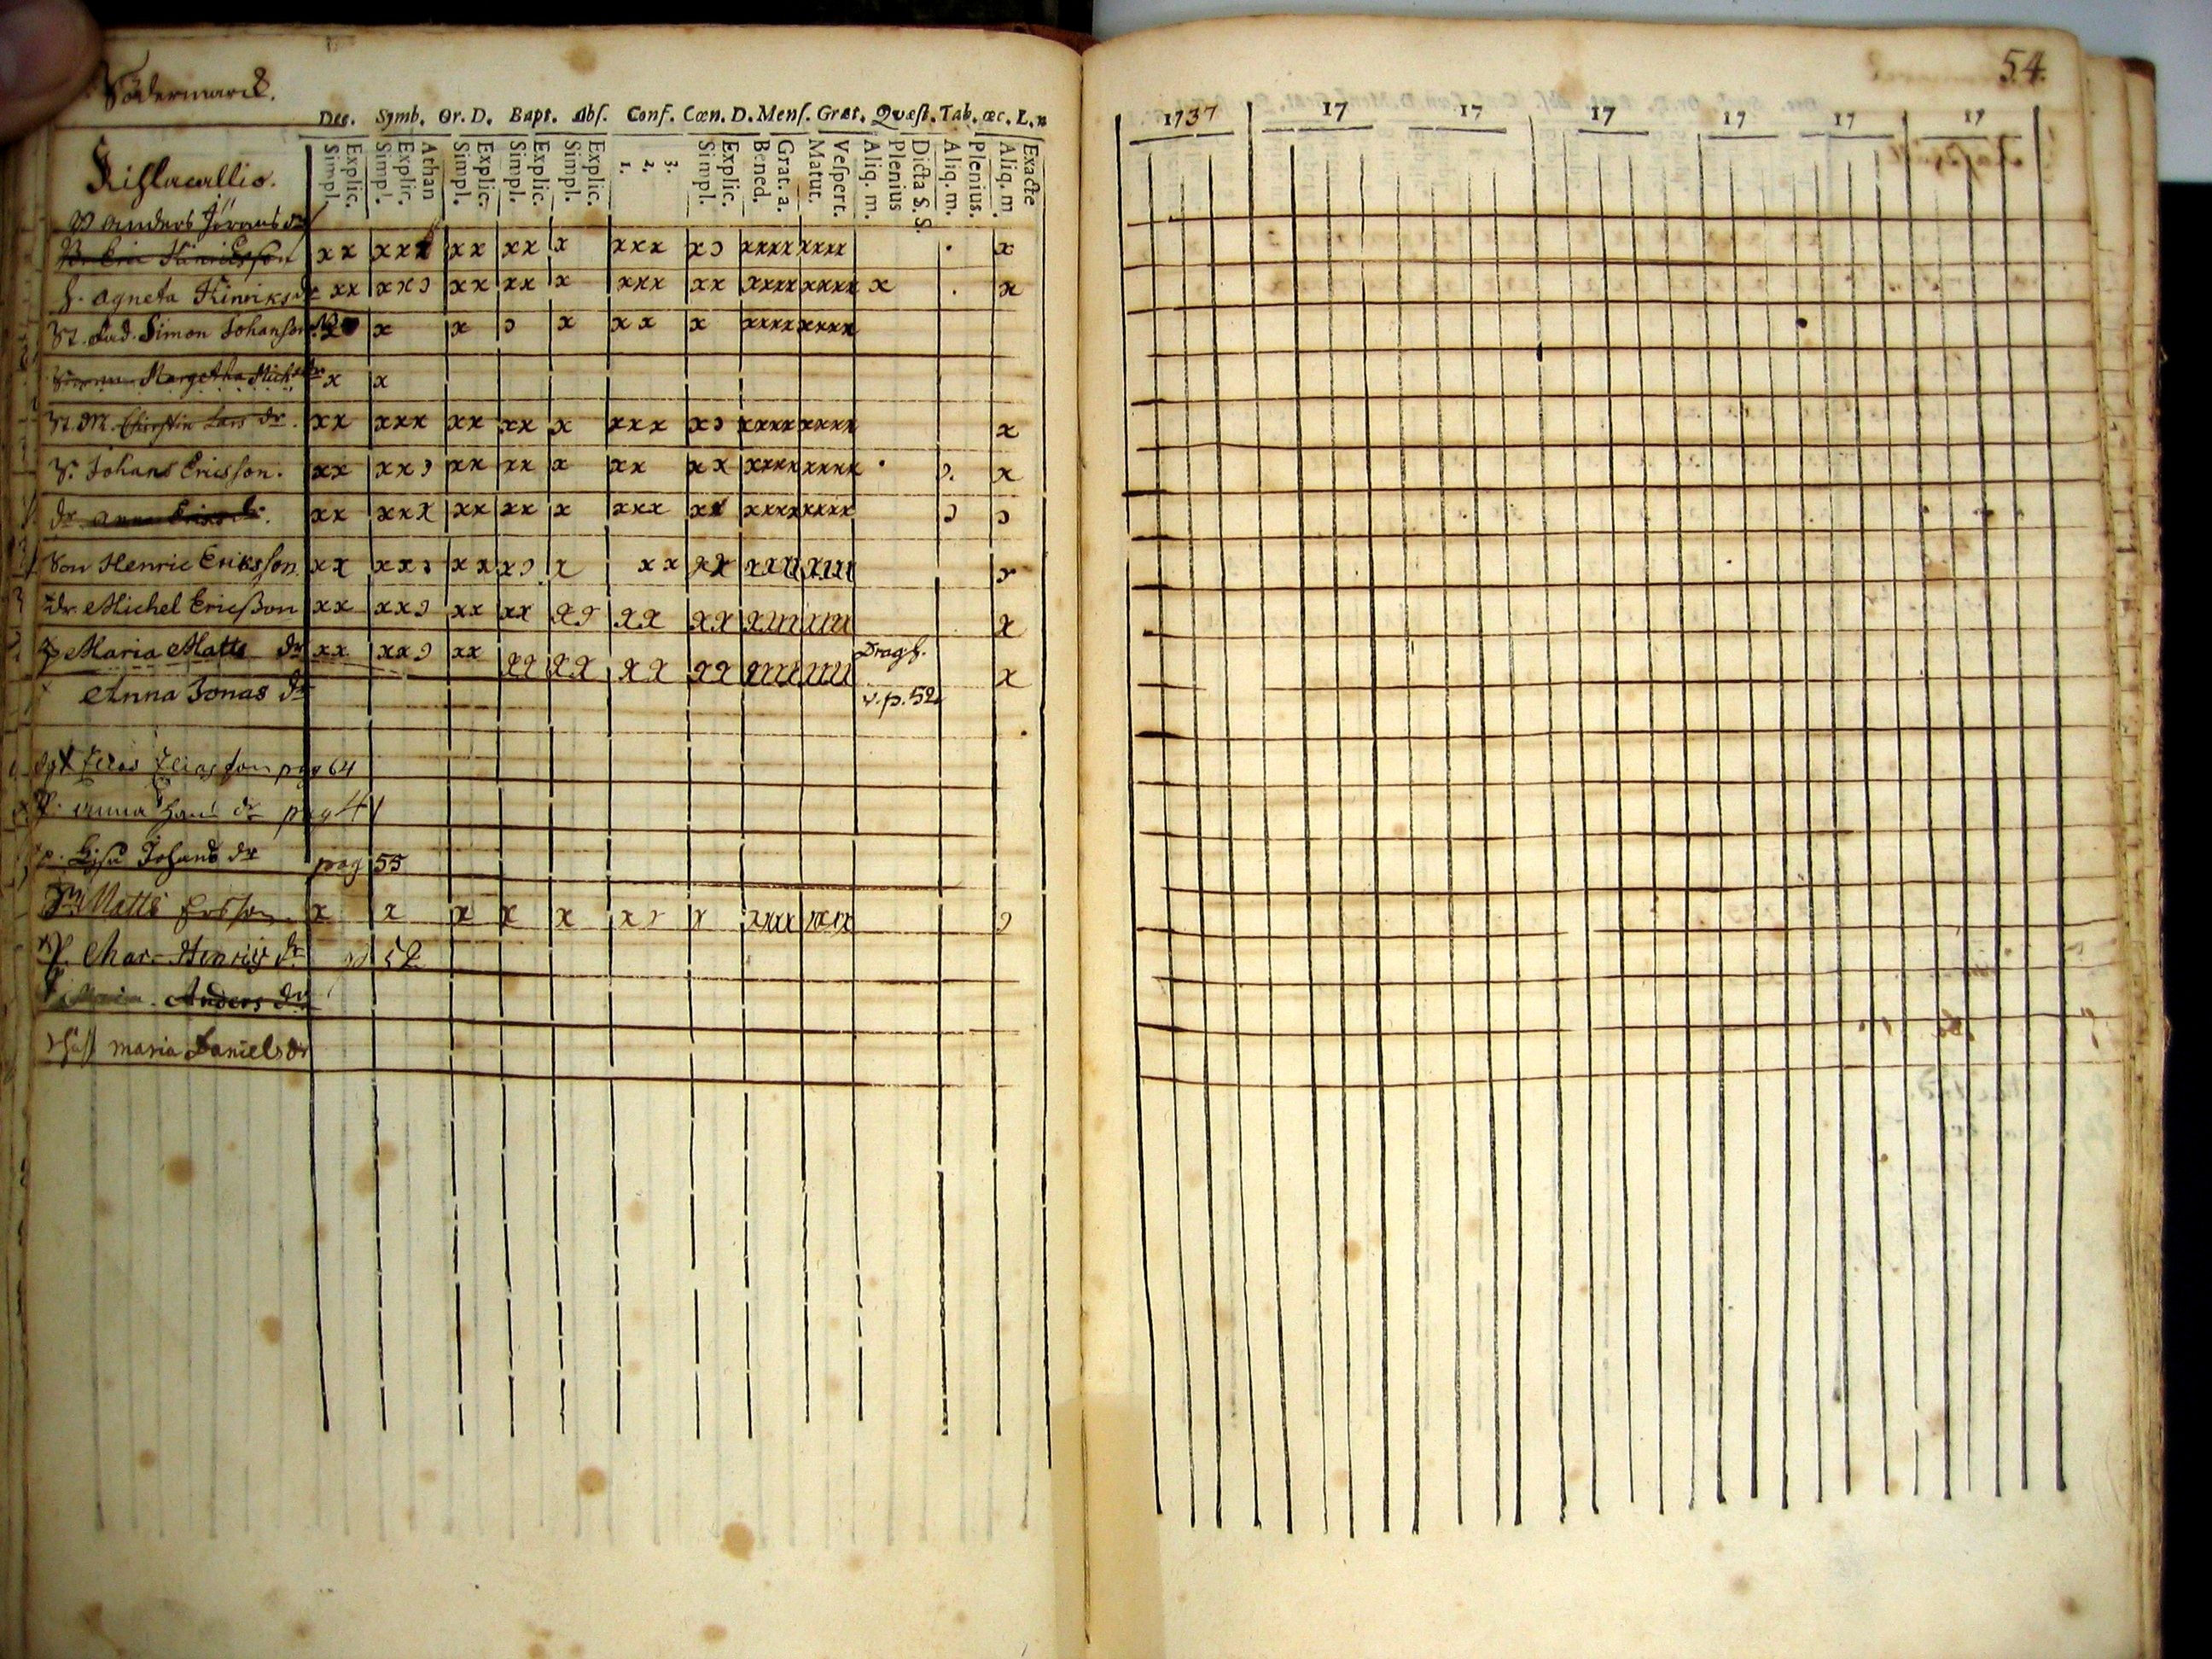 Södermarck.
Des. Symb. Or. D. Bapt. Abs. Conf. Cœn. D. Mens. Grat. Quæst. Tab. œc. L.
Simpl. Explic. Simpl. Explic. Athan Simpl. Explic. Simpl. Explic. Simpl. Explic. 1. 2. 3. Simpl. Explic. Bened. Grat. a. Matut. Vespert. Aliq. m. Plenius Dicta S. S. Aliq. m. Plenius. Aliq. m. Exacte
Anders Jörans dr
Eric Hinricsson xx xxx xx xx x xxx xɔ xxxx xxxx . x
h. Agneta Hinriksdr xx xxɔ xx xx x xxx xx xxxx xxxx x . x
Simon Johansson x x ɔ x xx x xxxx xxxx
Margetha Mich x x
M. Chirstin Lars dr. xx xxx xx xx x xxx xɔ xxxx xxxx x
Johans Ericsson. xx xxɔ xx xx x xx xx xxxx xxxx . ɔ. x
dr Anna Eriks dr. xx xxx xx xx x xxx xx xxxx xxxx ɔ ɔ
Son Henric Eriksson xx xxɔ xx xɔ x xx xx xxxx xxxx x
Michel Ericsson xx xxɔ xx xx xɔ xx xx xxxx xxxx x
Maria Matts dr xx xxɔ xx xx xx xx xx xxxx xxxx x
Anna Jonas dr v. p. 52
Elias Eliasson pag 64
Anna dr pag 41
p. Lisa Johans dr pag 55
Matts Ersson x x x x x xɔ x xxxx xxxx ɔ
Mar. Henrics dr 52
Anders dr
maria Daniels dr
54.
1737 17 17 17 17 17 17